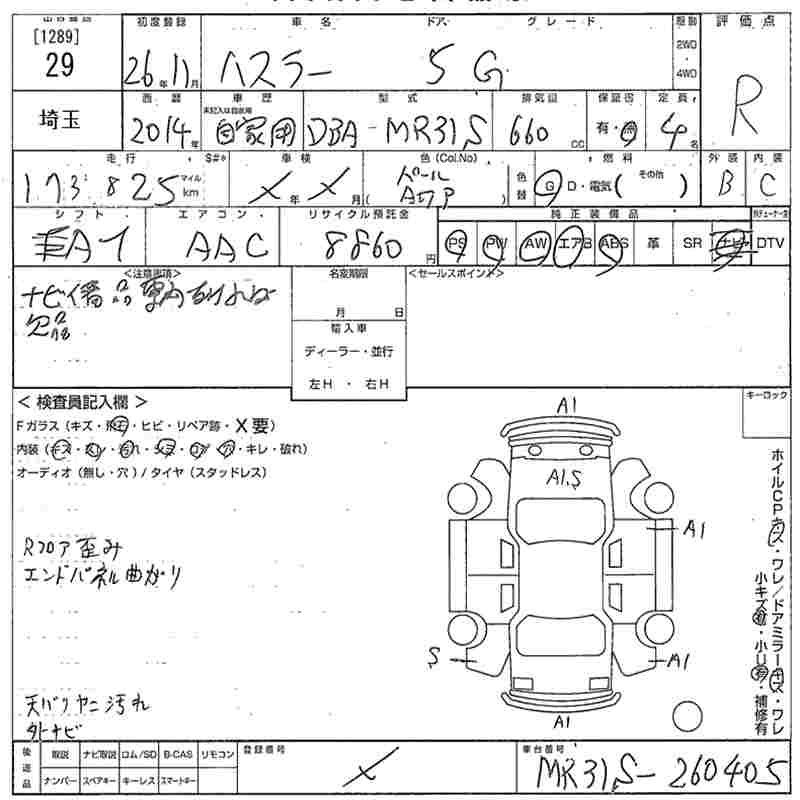 [1289]
29
埼玉
初度登録 車名 ドア グレード 駆動 評価点
26年11月 ハスラー 5 G 2WD・4WD R
西暦 車歴 型式 排気量 保証書 定員
未記入は自家用
2014年 自家用 DBA-MR31S 660cc 有・無 4名
走行 S#* 車検 色(Col.No) 色替 燃料 外装 内装
173825 マイル km X年X月 パール G D・電気( その他 ) B C
シフト エアコン リサイクル預託金 純正装備品
AT AAC 8860円 PS PW AW エアB ABS 革 SR ナビ DTV
<注意事項>
欠品
名変期限
月 日
輸入車
ディーラー・並行
左H・右H
<セールスポイント>
キーロック
<検査員記入欄>
Fガラス(キズ・飛石・ヒビ・リペア跡・X要)
内装(キズ・スレ・汚れ・シミ・コゲ・穴・キレ・破れ)
オーディオ(無し・穴)/タイヤ(スタッドレス)
Rフロア歪み
エンドパネル曲がり
天バリヤニ汚れ
外ナビ
A1
A1.S
A1
S
A1
A1
ホイルCPキズ・ワレ/ドアミラーキズ・ワレ
小キズ有・小U有・補修有
後送品 取説 ナビ取説 ロム/SD B-CAS リモコン
ナンバー スペアキー キーレス スマートキー
登録番号 X
車台番号 MR31S-260405